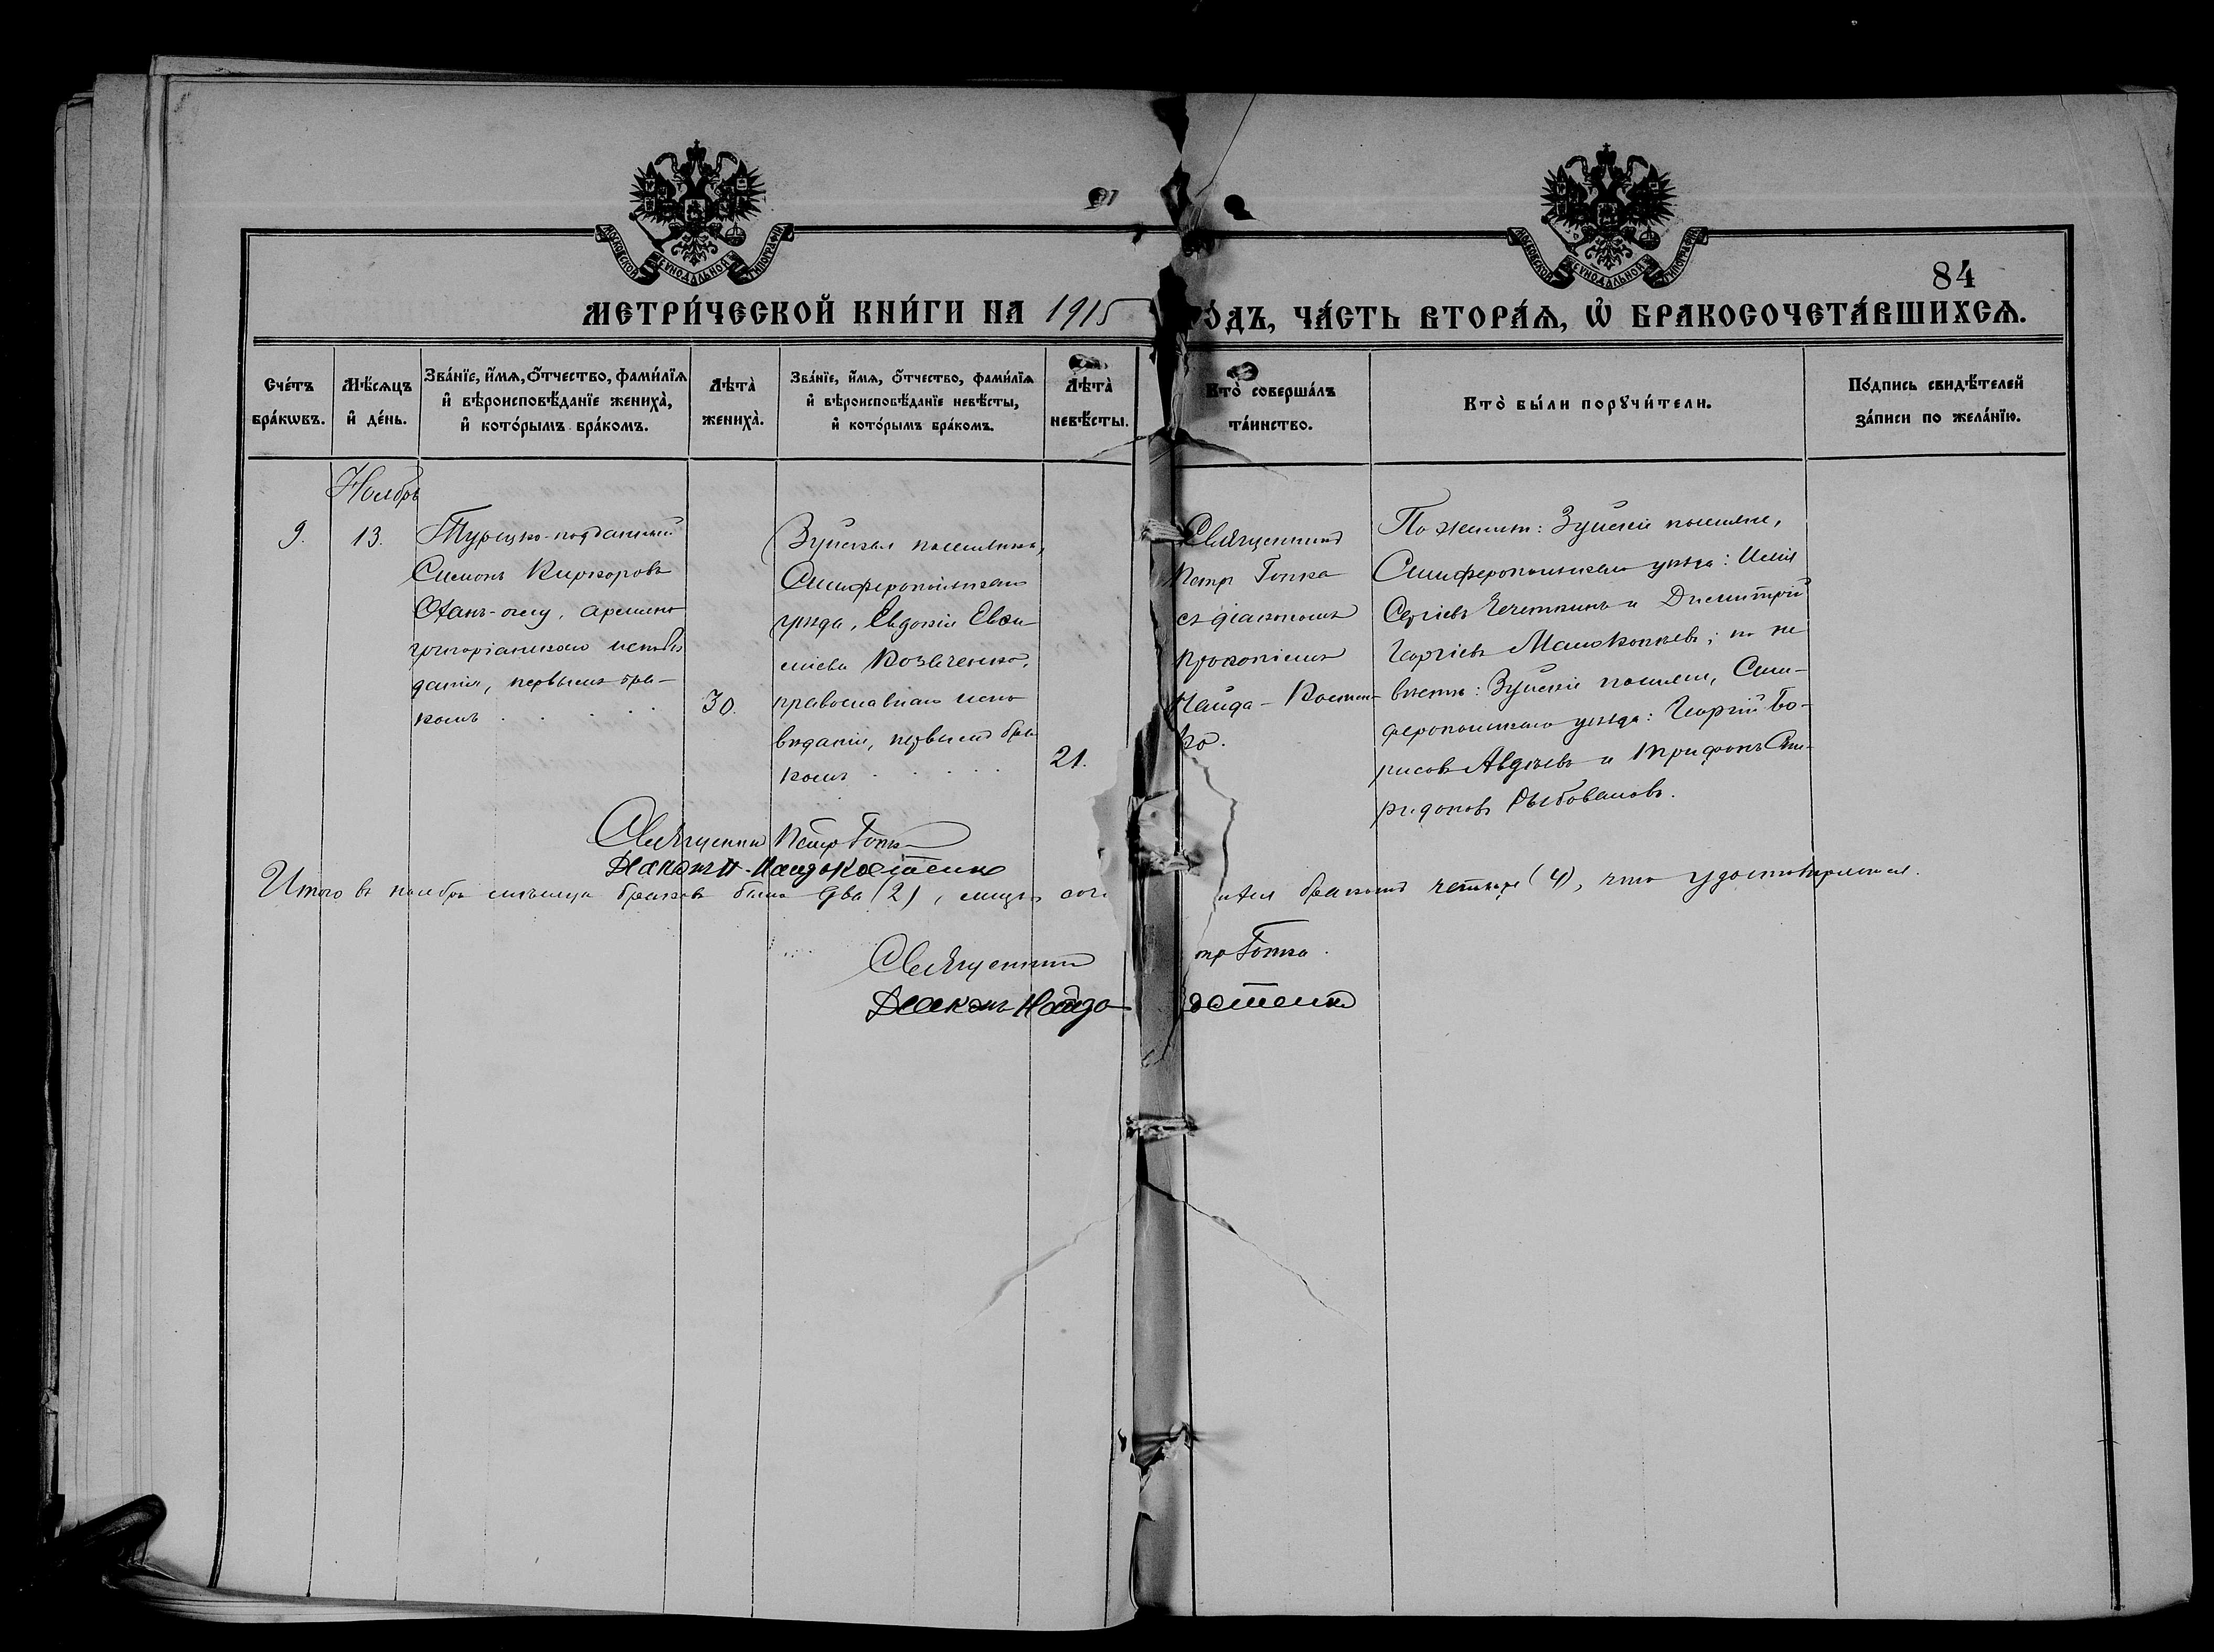 МОСКОВСКОЙ СѴНОДАЛЬНОЙ ТИПОГРАФІИ
МОСКОВСКОЙ СѴНОДАЛЬНОЙ ТИПОГРАФІИ
84
МЕТРИ́ЧЕСКОЙ КНИ́ГИ НА 1915
О́ДЪ, ЧА́СТЬ ВТОРА́Ѧ, Ѡ БРАКОСОЧЕТА́ВШИХСѦ.
Сче́тъ бра́кѡвъ.
Мѣ́сяцъ и҆ де́нь.
Зва́нїе, и҆́мѧ, ѻ҆́тчество, фами́лїѧ
и҆ вѣроисповѣ́данїе жениха̀,
и҆ кото́рымъ бра́комъ.
Лѣта̀ жениха̀.
Зва́нїе, и҆́мѧ, ѻ҆́тчество, фами́лїѧ
и҆ вѣроисповѣ́данїе невѣ́сты,
и҆ кото́рымъ бра́комъ.
Лѣта̀ невѣ́сты.
Кто̀ соверша́лъ та́инство.
Кто̀ бы́ли порꙋчи́тели.
По́дпись свидѣ́телей
за́писи по жела́нїю.
Ноябрь
9.
13.
Турецко-подданный
Симонъ Киркоровъ
Оганъ-оглу, армяно
григоріанскаго исповѣ
данія, первымъ бра-
комъ
30.
Зуйская поселянка,
Симферопольскаго
уѣзда, Евдокія Евѳи-
міева Козаченко,
православнаго испо
вѣданія, первымъ бра
комъ
21.
Священникъ
Петръ Гопка
съ діакономъ
Прокопіемъ
Найда-Костен-
ко.
По жениху: Зуйскіе поселяне,
Симферопольскаго уѣзда: Илія
Сергіевъ Чечеткинъ и Димитрій
Георгіевъ ; по не
вѣстѣ: Зуйскіе поселяне, Сим-
феропольскаго уѣзда: Георгій Бо-
рисовъ Авдѣевъ и Трифонъ Спи-
ридоновъ
Священникъ Петръ Гопка
Діаконъ П. Найда-Костенко
Итого въ ноябрѣ мѣсяцѣ браковъ было два (2), лицъ соче тися бракомъ четыре (4), что удостовѣряется.
Священникъ
тръ Гопка.
Діаконъ Найда
остенко